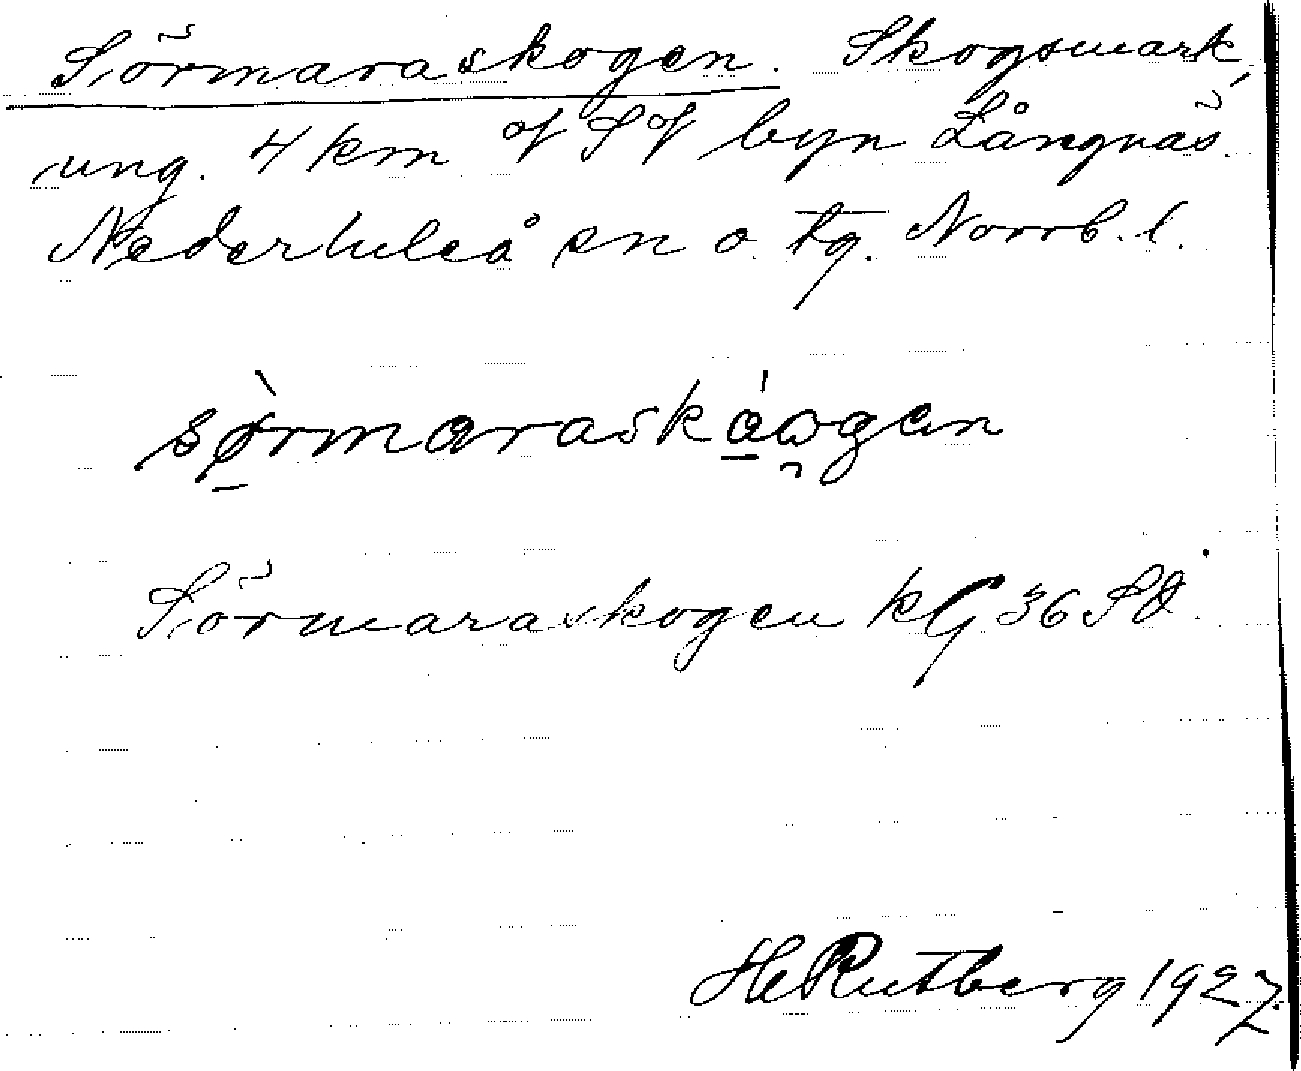 Sörmaraskogen. Skogsmark,
ung. 4 km of S of byn Långnäs.
Nederluleå sn o. tg. Norrb. l.
sø̀rmaraskáωgen
Sörmaraskogen kG 36 SO.
HeRutberg 1927.